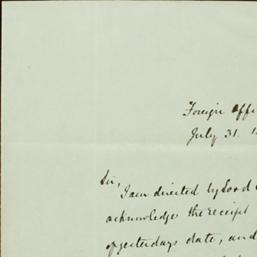 Foreign Offi
July 31. 1
Sir,
I am directed by Lord
acknowledge the receipt
of yesterdays date, and